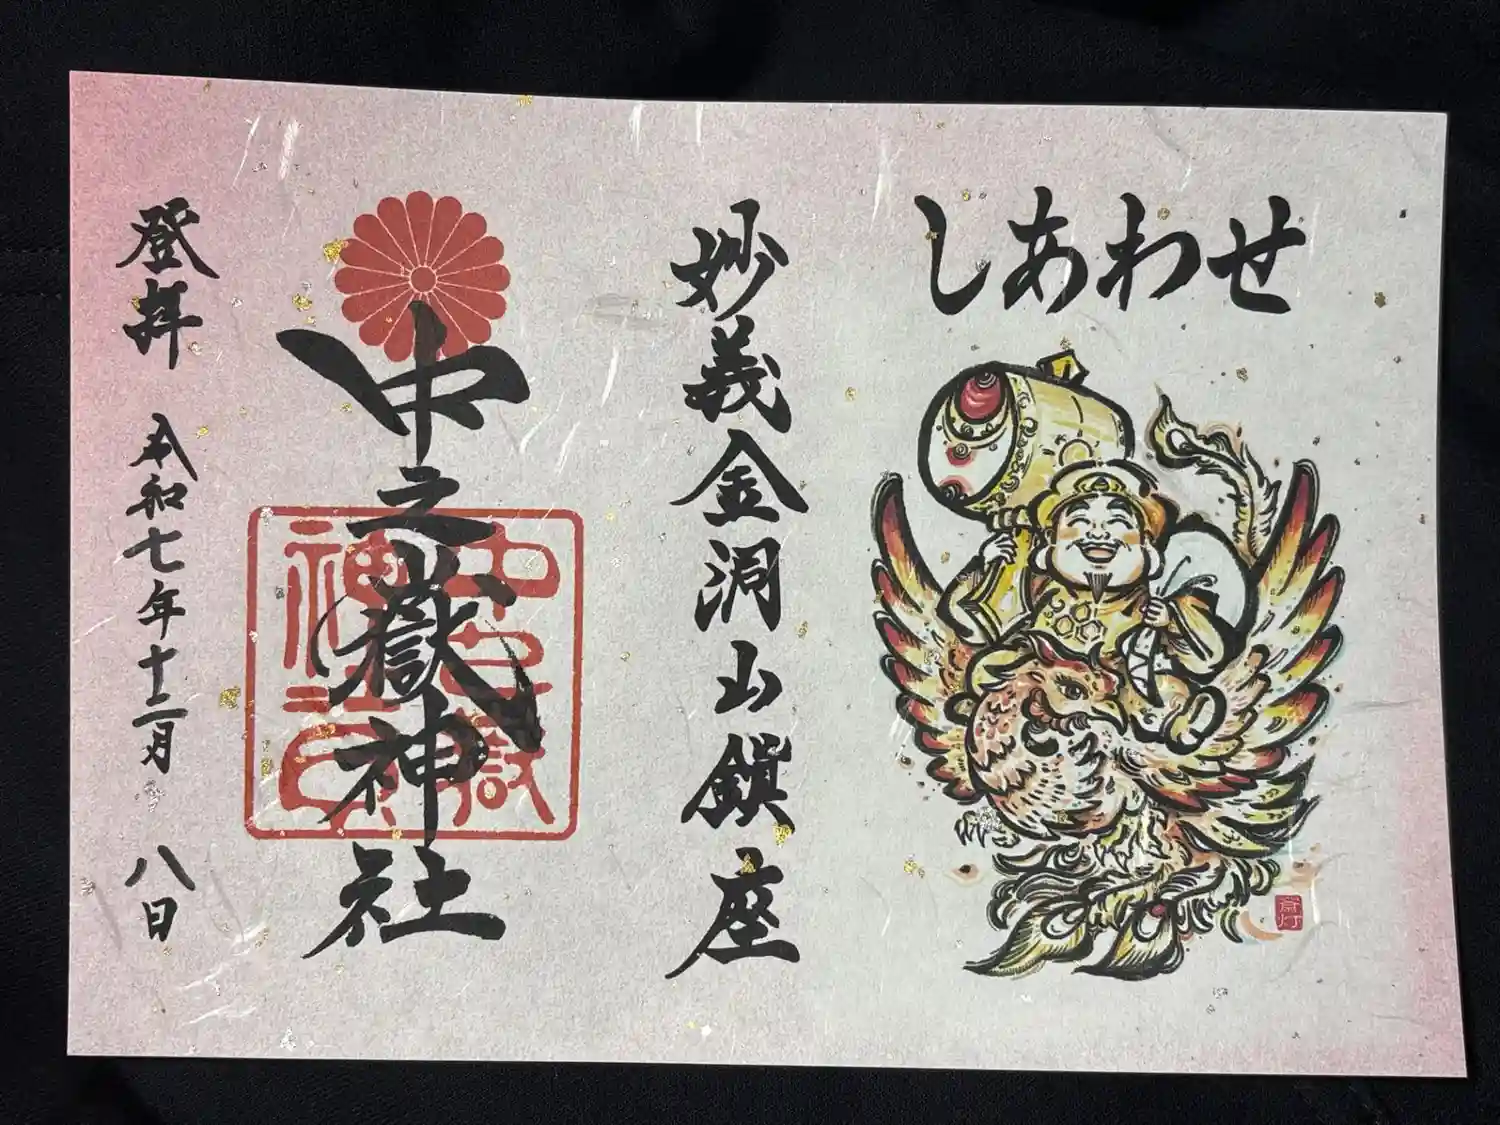 しあわせ
妙義金洞山鎮座
中之嶽神社
中之嶽
神社
登拝 令和七年十二月 八日